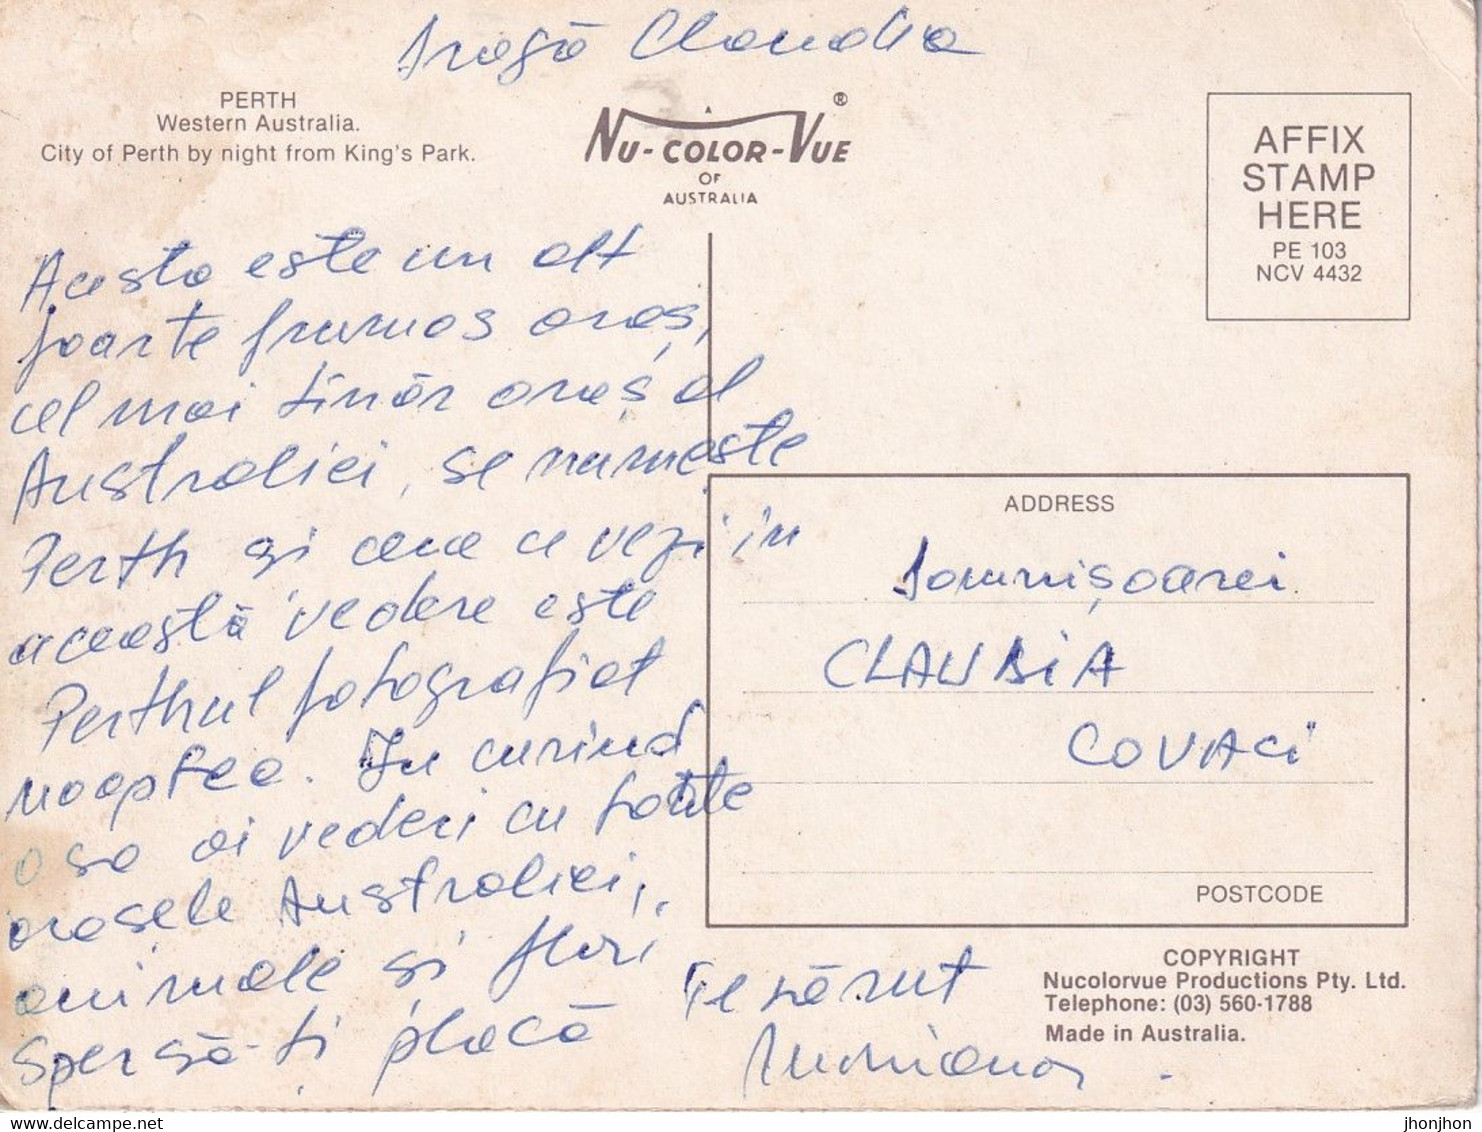 Dragă Claudia
PERTH
Western Australia.
City of Perth by night from King's Park.
A
NU-COLOR-VUE ®
OF
AUSTRALIA
AFFIX
STAMP
HERE
PE 103
NCV 4432
Acesta este un alt
foarte frumos oraș,
cel mai tînăr oraș al
Australiei, se numește
Perth și ceea ce vezi in
această vedere este
Perthul fotografiat
noaptea. In curind
o sa ai vederi cu toate
orasele Australiei,
animale și flori
Sper să-ți placă
Te sărut
ADDRESS
Domnișoarei
CLAUDIA
COVACI
POSTCODE
COPYRIGHT
Nucolorvue Productions Pty. Ltd.
Telephone: (03) 560-1788
Made in Australia.
jhonjhon